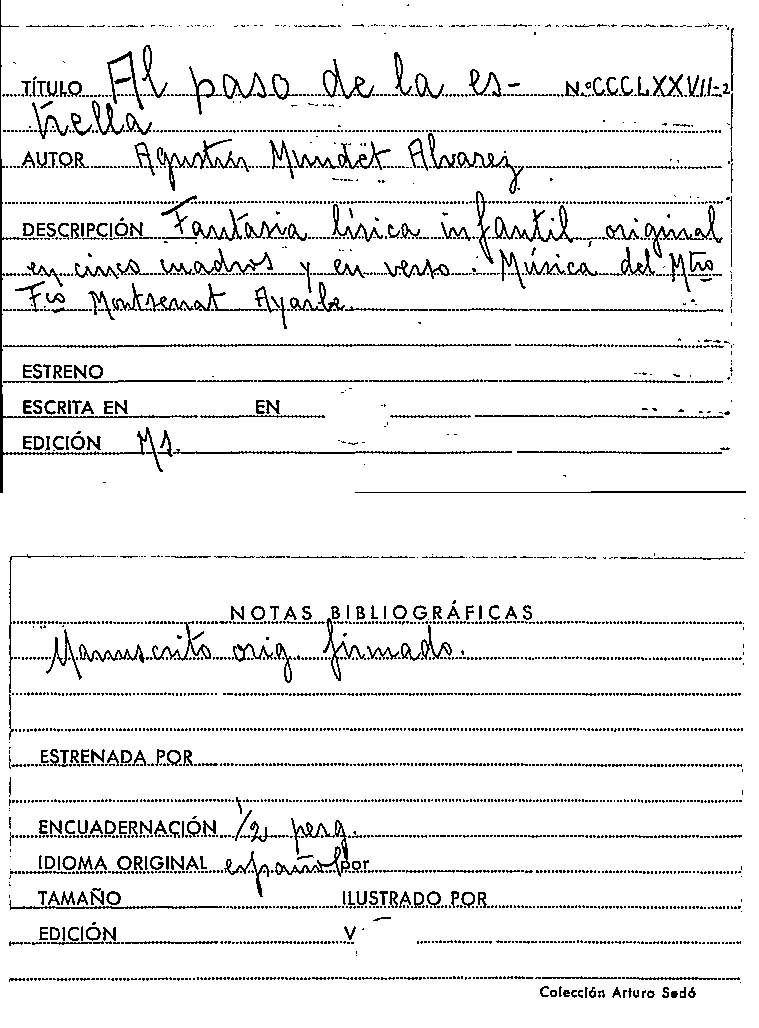 TÍTULO Al paso de la es- N.º CCCLXXVII-2
trella
AUTOR Agustín Mundet Alvarez
DESCRIPCIÓN Fantasia lírica infantil, original
en cinco cuadros y en verso. Música del Mtro
Fco Montserrat Ayarbe.
ESTRENO
ESCRITA EN EN
EDICIÓN Ms.
NOTAS BIBLIOGRÁFICAS
Manuscrito orig. firmado.
ESTRENADA POR
ENCUADERNACIÓN 1/2 perg.
IDIOMA ORIGINAL español por
TAMAÑO ILUSTRADO POR
EDICIÓN V
Colección Arturo Sedó